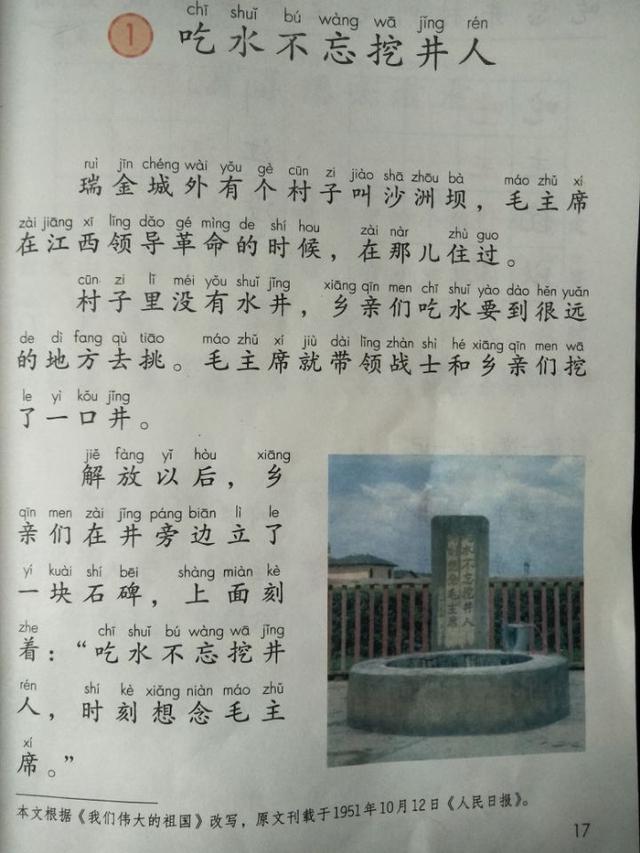 chī shuǐ bú wàng wā jǐng rén
1 吃水不忘挖井人
ruì jīn chéng wài yǒu gè cūn zi jiào shā zhōu bà máo zhǔ xí
瑞金城外有个村子叫沙洲坝，毛主席
zài jiāng xī lǐng dǎo gé mìng de shí hou zài nàr zhù guo
在江西领导革命的时候，在那儿住过。
cūn zi lǐ méi yǒu shuǐ jǐng xiāng qīn men chī shuǐ yào dào hěn yuǎn
村子里没有水井，乡亲们吃水要到很远
de dì fang qù tiāo máo zhǔ xí jiù dài lǐng zhàn shì hé xiāng qīn men wā
的地方去挑。毛主席就带领战士和乡亲们挖
le yì kǒu jǐng
了一口井。
jiě fàng yǐ hòu xiāng
解放以后，乡
qīn men zài jǐng páng biān lì le
亲们在井旁边立了
yí kuài shí bēi shàng miàn kè
一块石碑，上面刻
zhe chī shuǐ bú wàng wā jǐng
着：“吃水不忘挖井
rén shí kè xiǎng niàn máo zhǔ
人，时刻想念毛主
xí
席。”
吃水不忘挖井人
时刻想念毛主席
本文根据《我们伟大的祖国》改写，原文刊载于1951年10月12日《人民日报》。
17